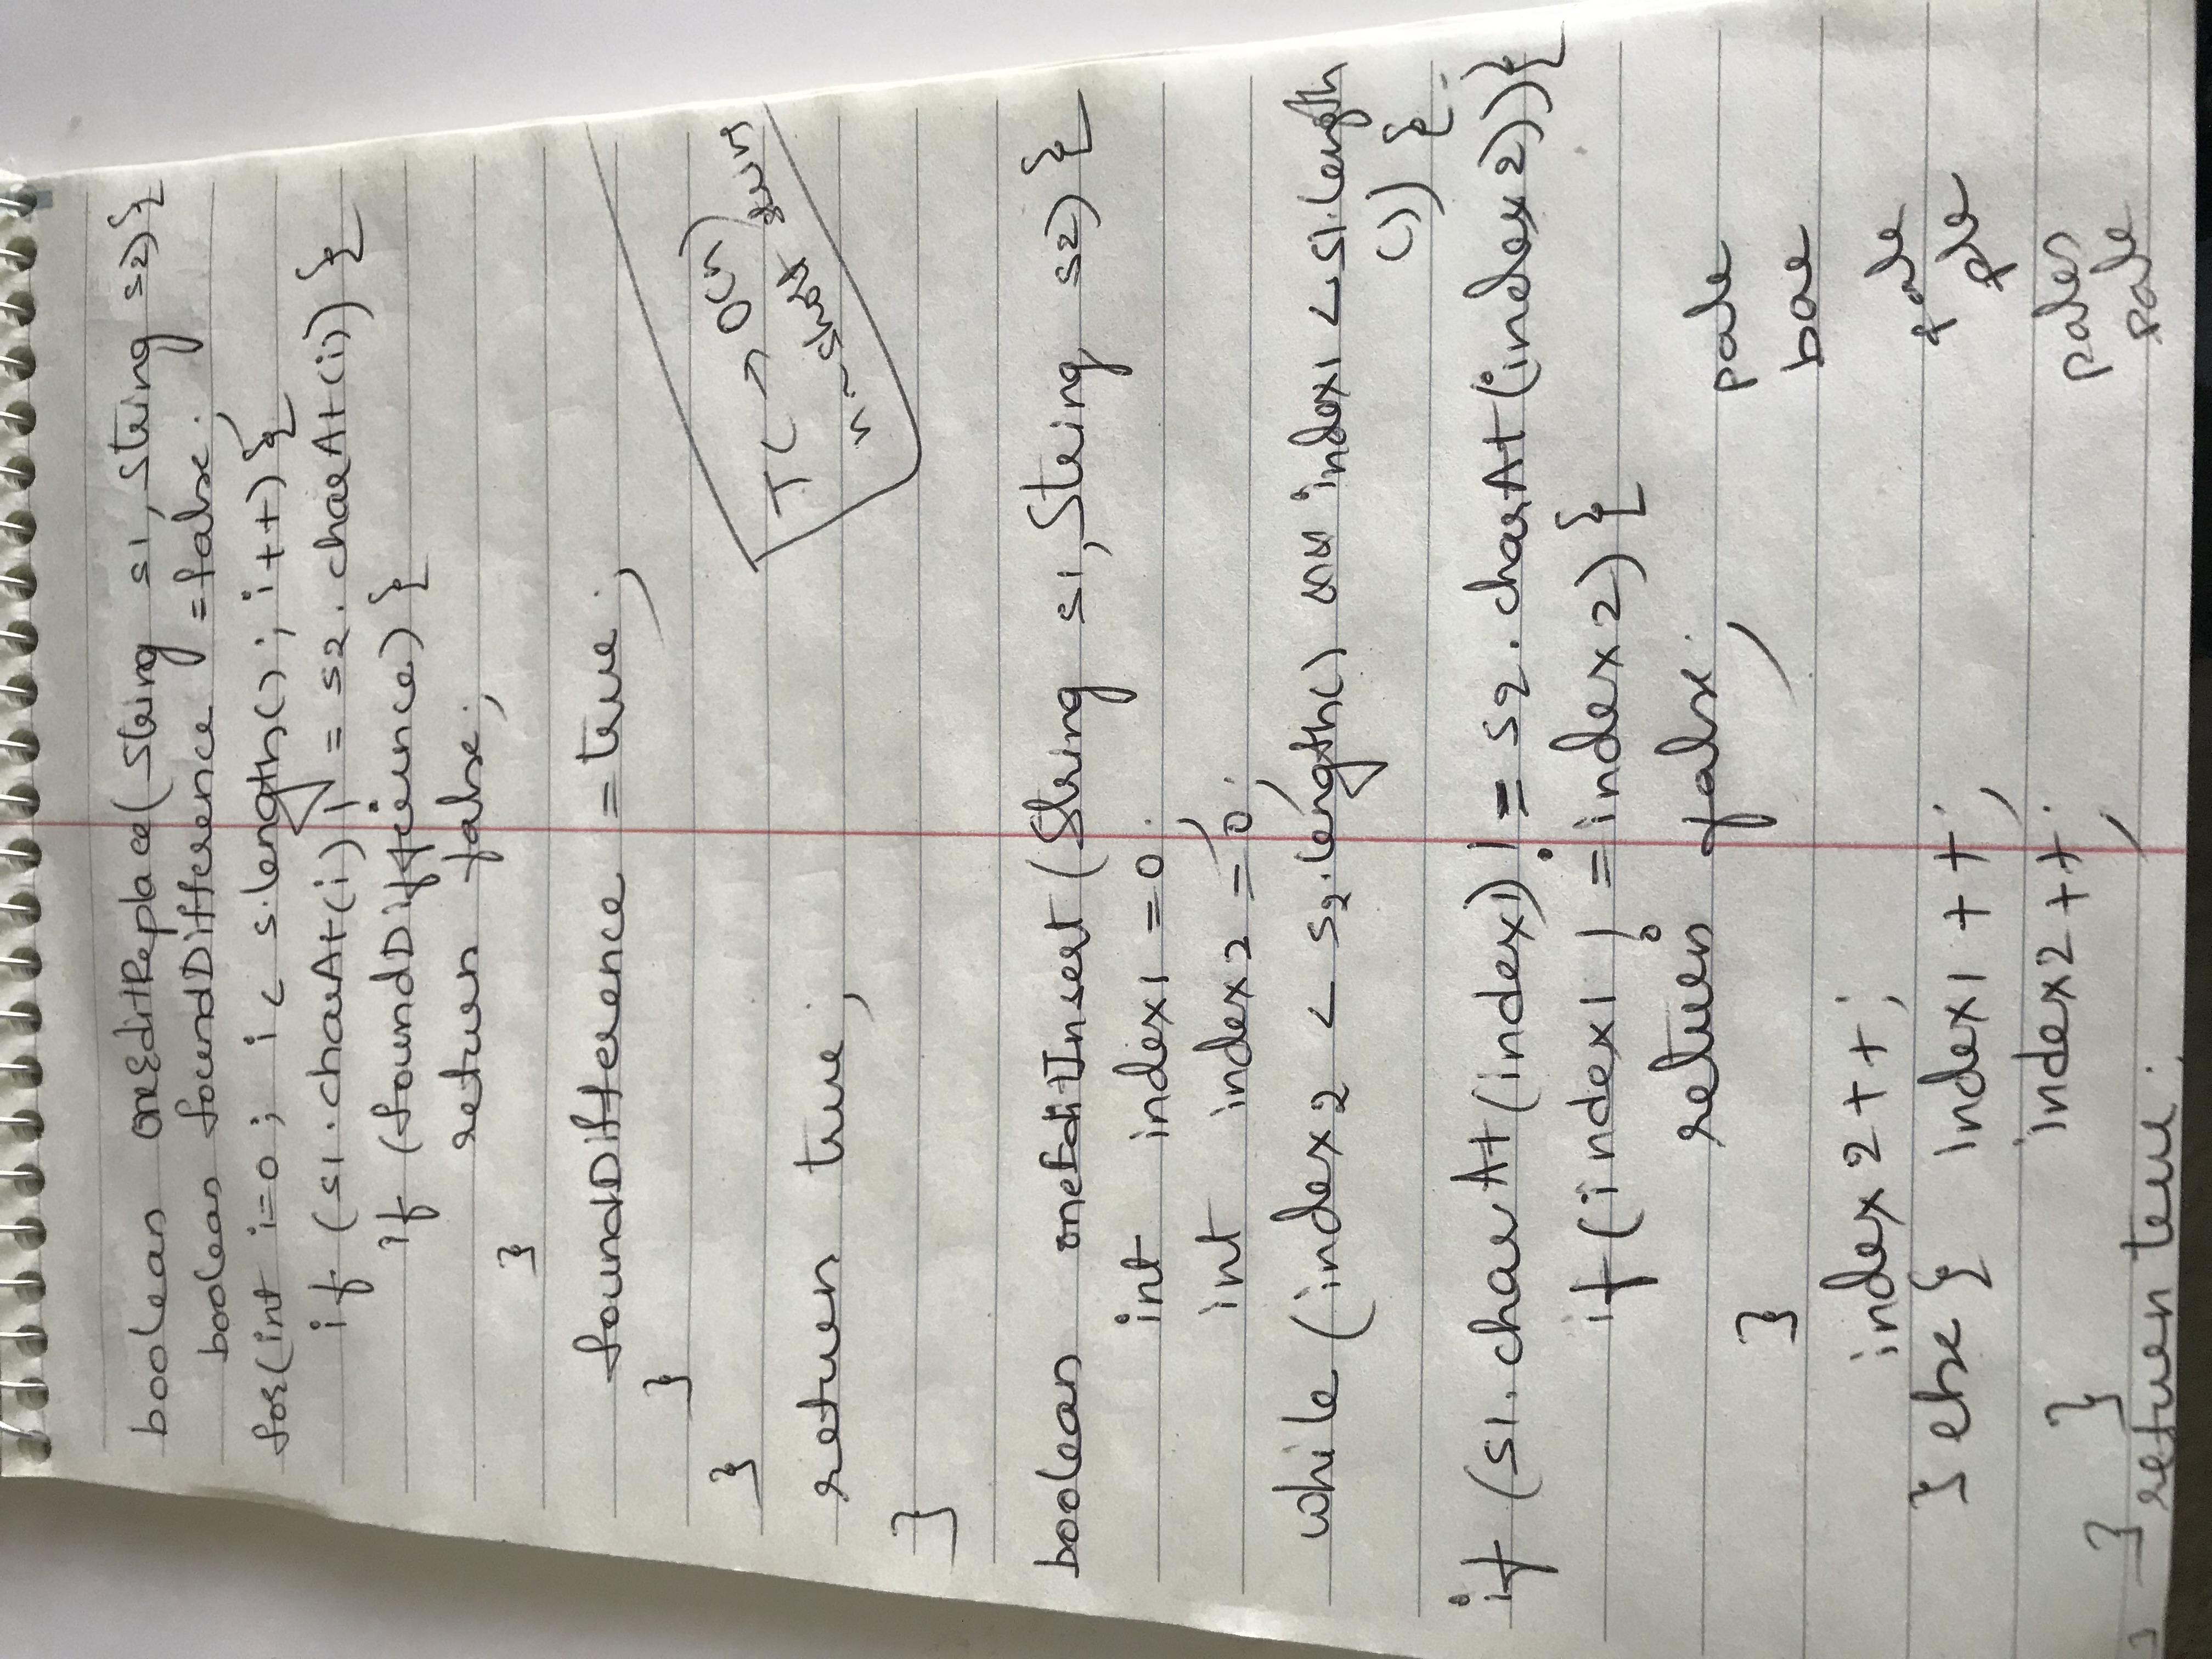 boolean oneEditReplace(String s1, String s2){
boolean foundDifference = false;
for(int i=0; i < s.length(); i++){
if (s1.charAt(i) != s2.charAt(i)) {
if (foundDifference) {
return false;
}
foundDifference = true;
}
}
TC → O(n)
n ~ short string
return true;
}
boolean oneEditInsert (String s1, String s2) {
int index1 = 0;
int index2 = 0;
while (index2 < s2.length() && index1 < s1.length
()) {
if (s1.charAt(index1) != s2.charAt(index2)){
if(index1 != index2) {
return false;
}
index2++;
} else { index1++;
index2++;
}
}
return true;
}
pale
bae
pale
ple
pales
pale